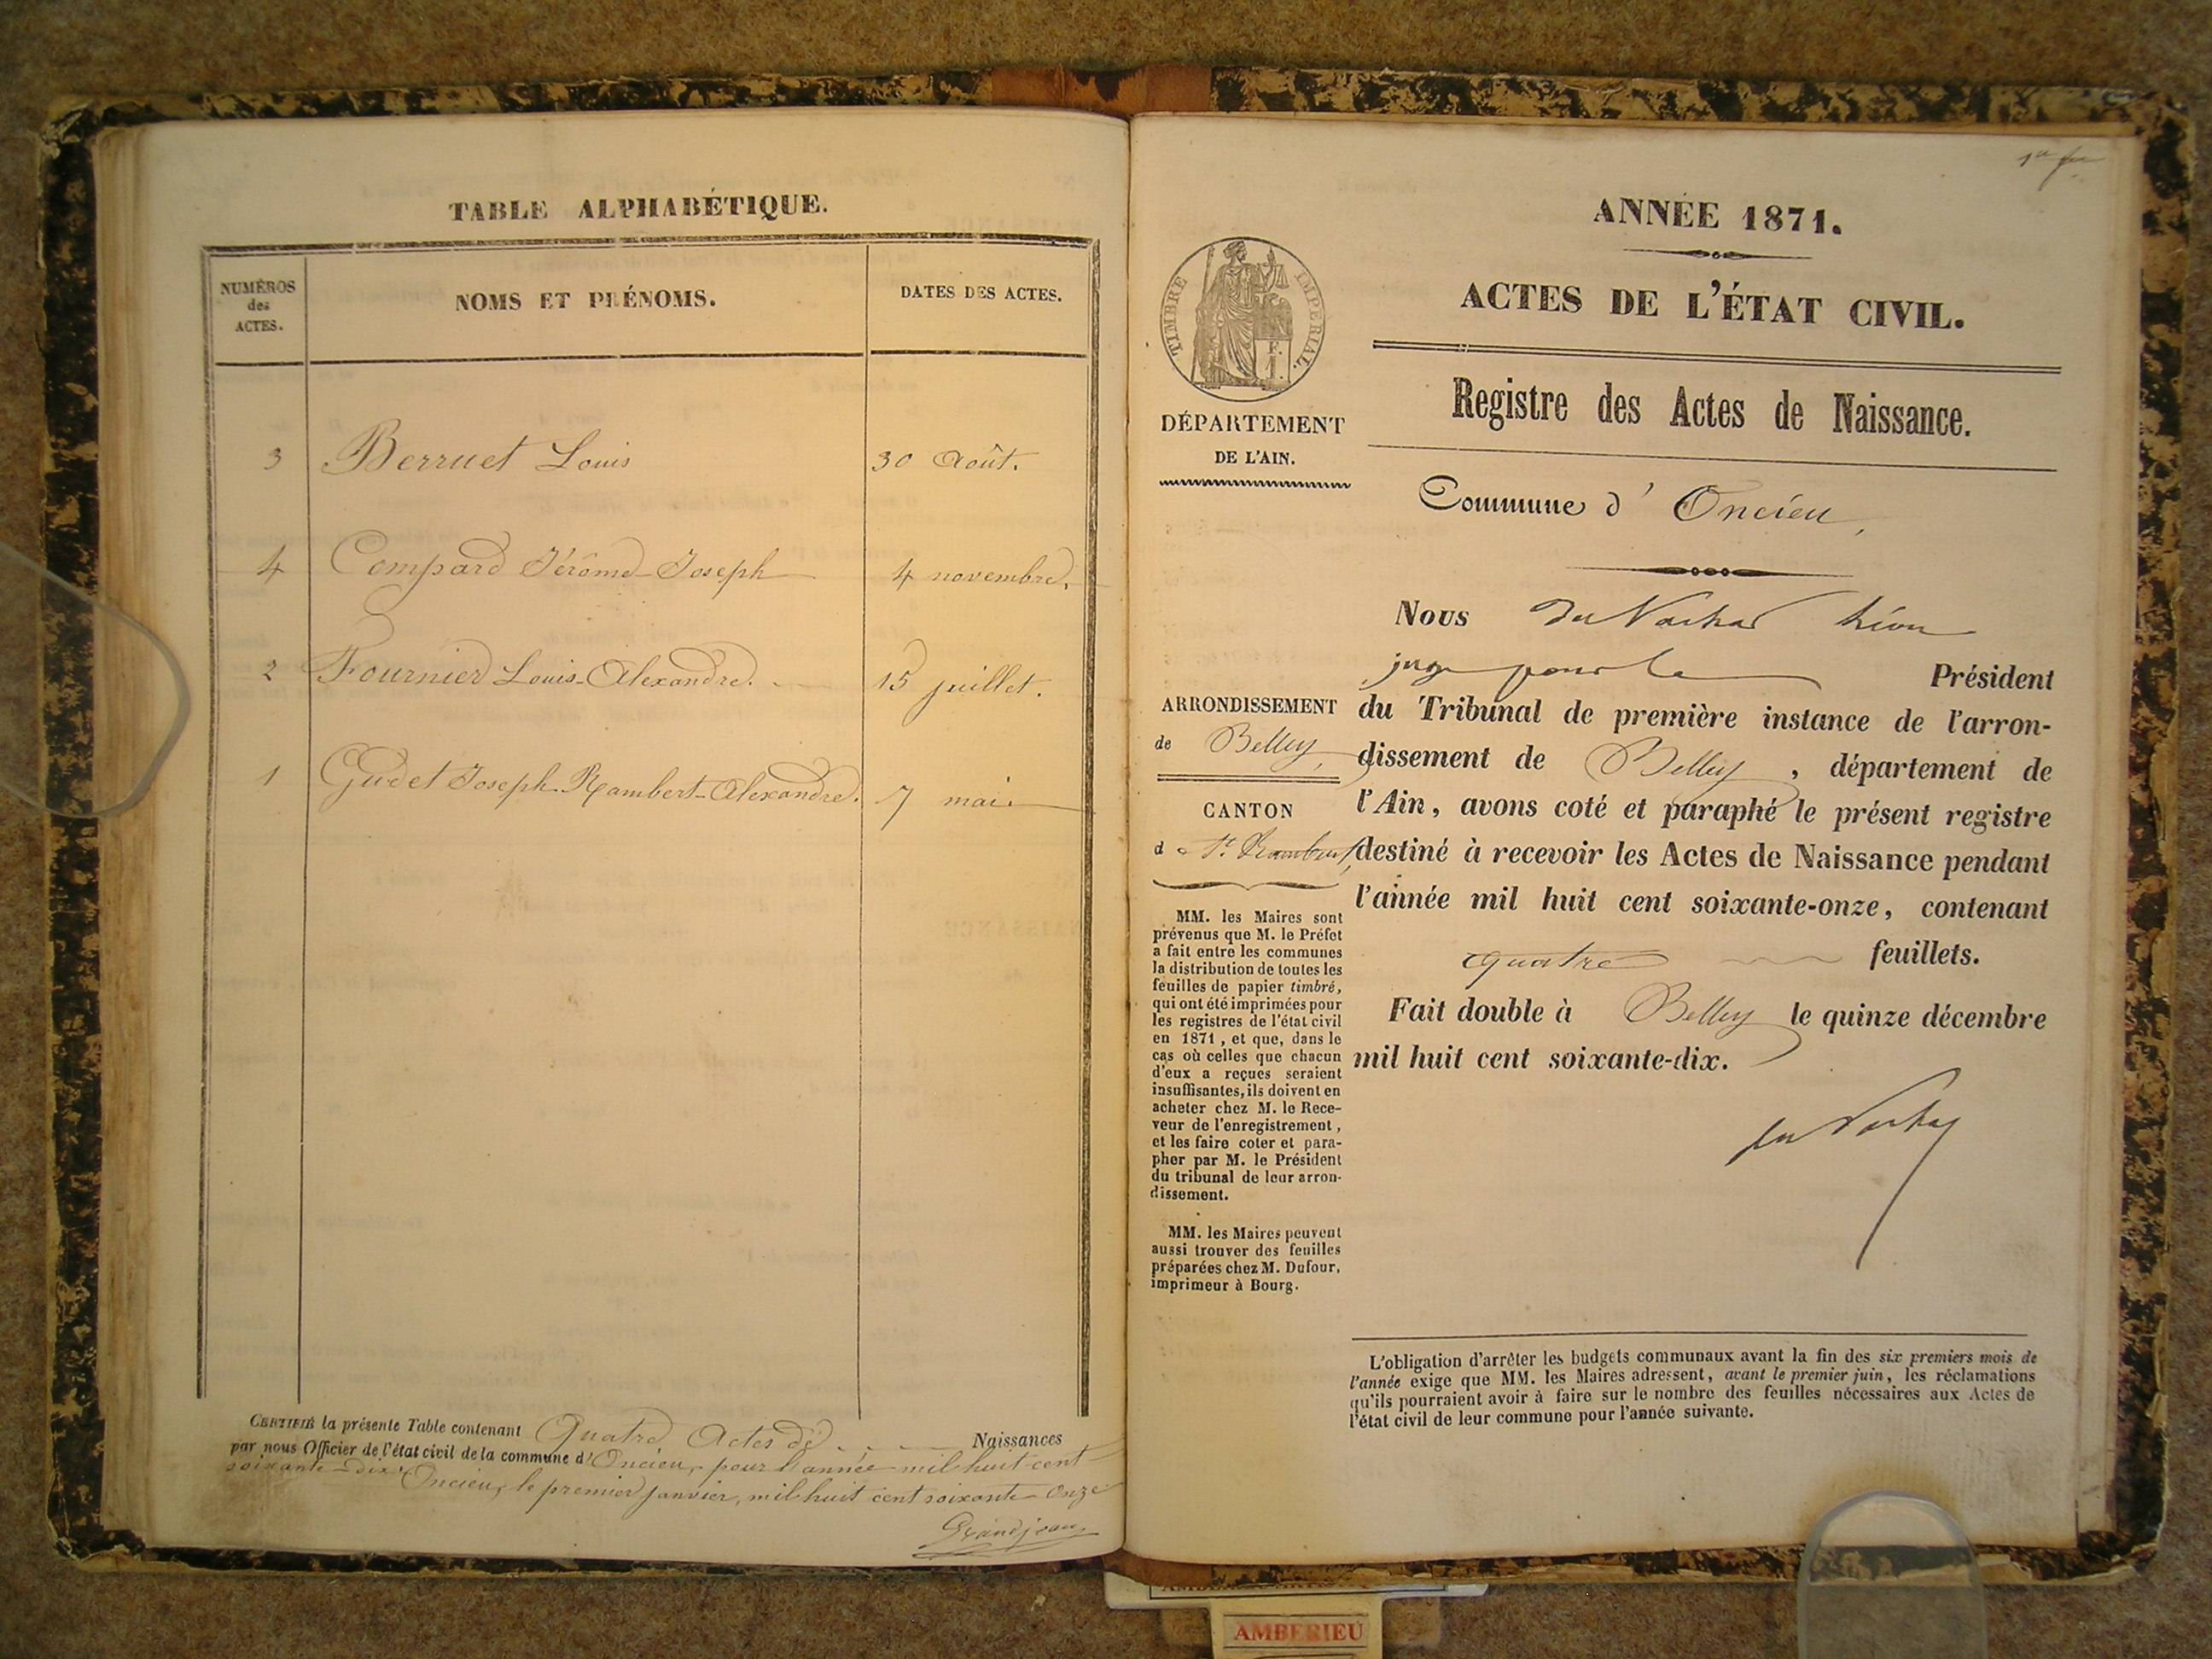 TABLE ALPHABÉTIQUE.
NUMÉROS
des
ACTES.
NOMS ET PRÉNOMS.
DATES DES ACTES.
3 Berruet Louis 30 Août.
4 Compard Jérôme-Joseph 4 novembre.
2 Fournier Louis-Alexandre. 15 juillet.
1 Gudet Joseph-Rambert-Alexandre. 7 mai.
CERTIFIÉ la présente Table contenant Quatre Actes de Naissances
par nous Officier de l'état civil de la commune d'Oncieu, pour l'année mil huit cent
soixante-dix. Oncieu, le premier janvier, mil huit cent soixante onze
Grandjean
ANNÉE 1871.
ACTES DE L'ÉTAT CIVIL.
Registre des Actes de Naissance.
TIMBRE IMPERIAL.
1 F.
DÉPARTEMENT
DE L'AIN.
Commune d'Oncieu,
Nous
juge pour le Président
du Tribunal de première instance de l'arron-
dissement de Belley, département de
l'Ain, avons coté et paraphé le présent registre
destiné à recevoir les Actes de Naissance pendant
l'année mil huit cent soixante-onze, contenant
quatre feuillets.
Fait double à Belley le quinze décembre
mil huit cent soixante-dix.
ARRONDISSEMENT
de Belley,
CANTON
de St. Rambert,
MM. les Maires sont
prévenus que M. le Préfet
a fait entre les communes
la distribution de toutes les
feuilles de papier timbré,
qui ont été imprimées pour
les registres de l'état civil
en 1871, et que, dans le
cas où celles que chacun
d'eux a reçues seraient
insuffisantes, ils doivent en
acheter chez M. le Rece-
veur de l'enregistrement,
et les faire coter et para-
pher par M. le Président
du tribunal de leur arron-
dissement.
MM. les Maires peuvent
aussi trouver des feuilles
préparées chez M. Dufour,
imprimeur à Bourg.
L'obligation d'arrêter les budgets communaux avant la fin des six premiers mois de
l'année exige que MM. les Maires adressent, avant le premier juin, les réclamations
qu'ils pourraient avoir à faire sur le nombre des feuilles nécessaires aux Actes de
l'état civil de leur commune pour l'année suivante.
AMBERIEU